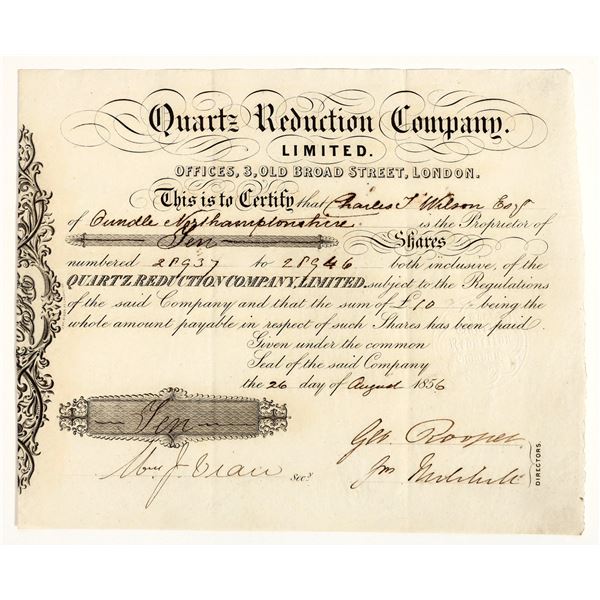 Quartz Reduction Company.
LIMITED.
OFFICES, 3, OLD BROAD STREET, LONDON.
This is to Certify that Charles T Wilson Esqr
of Oundle Northamptonshire is the Proprietor of
Ten Shares
numbered 28937 to 28946 both inclusive, of the
QUARTZ REDUCTION COMPANY, LIMITED, subject to the Regulations
of the said Company and that the sum of £10 being the
whole amount payable in respect of such Shares has been paid.
Given under the common
Seal of the said Company
the 26 day of August 1856
Ten
Geo. Rooper
Secy.
DIRECTORS.